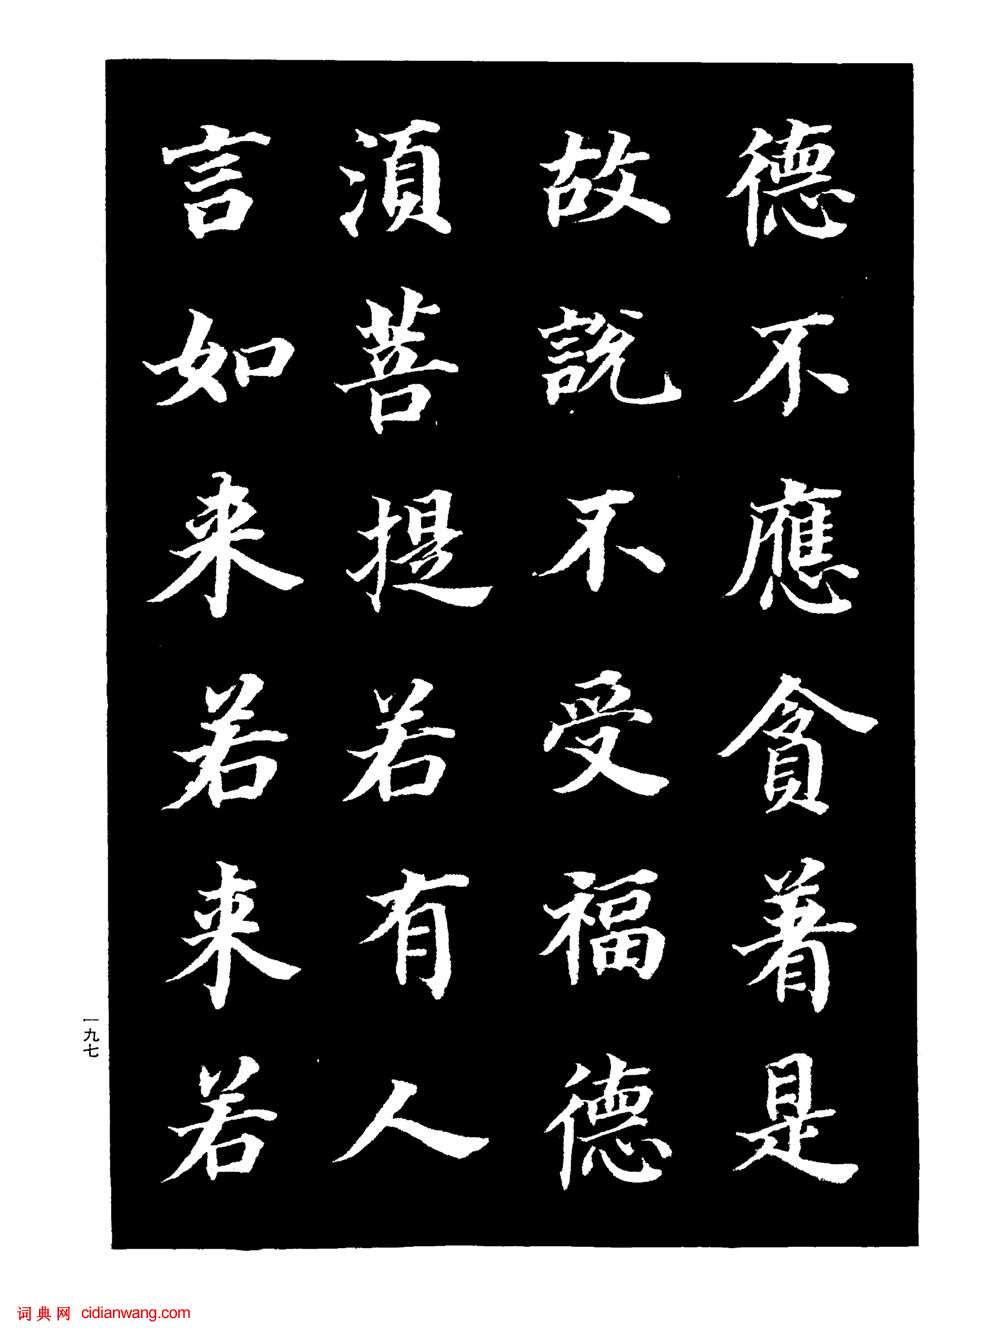 德不應貪著是
故說不受福德
須菩提若有人
言如来若来若
一九七
词典网 cidianwang.com